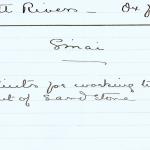 tt Rivers — Ox f
Sinai
lints for working t
t of Sandstone